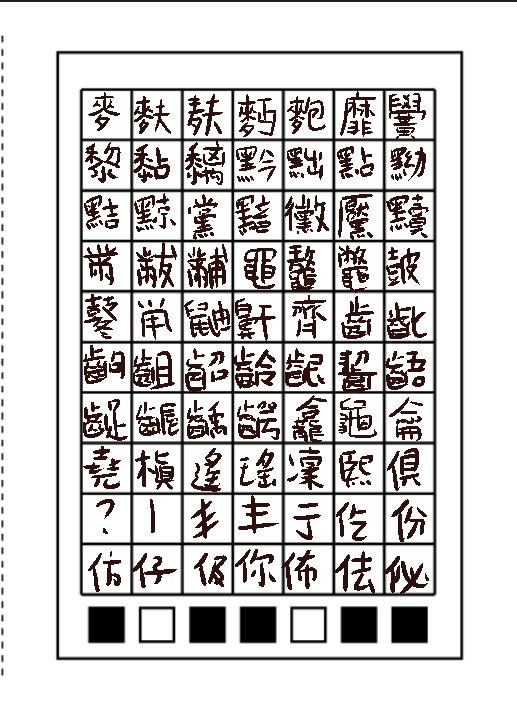 麥麩麸麪麭靡黌
黎黏黐黔黜點黝
黠黥黨黯黴黶黷
黹黻黼黽鼇鼈皷
鼕鼡鼬鼾齊齒齔
齣齟齠齡齦齧齬
齪齷齲齶龕龜龠
堯槇遙瑤凜熙俱
?丨丯丰亍仡份
仿伃伋你佈佉佖